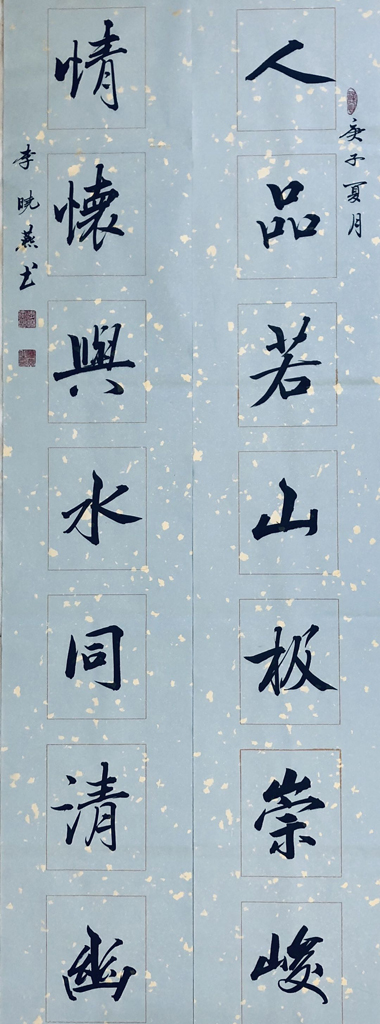 庚子夏月
人品若山板崇峻
情懷與水同清幽
李晓燕书